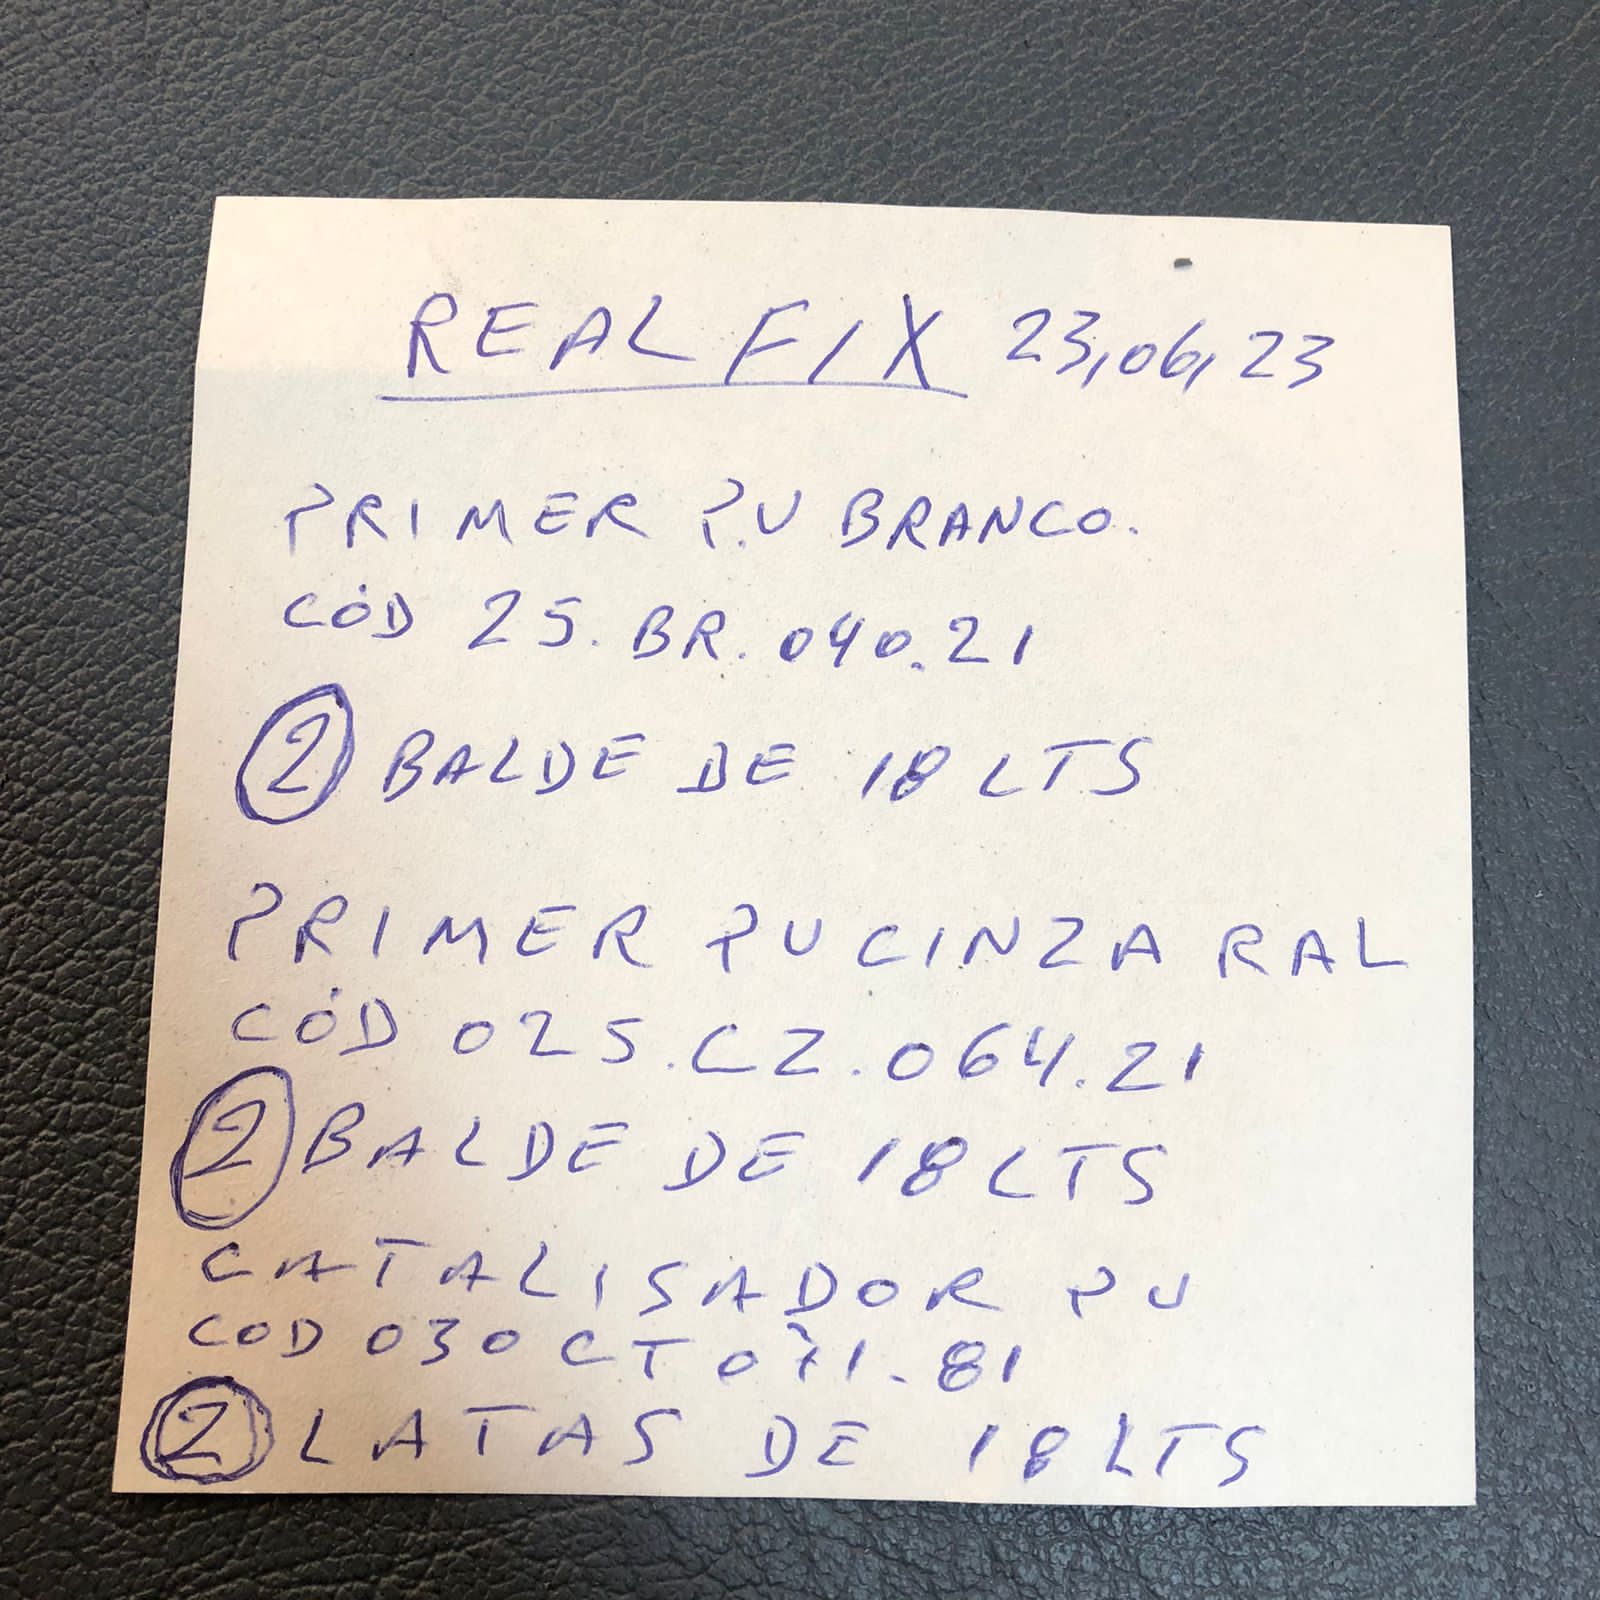 REAL FIX 23,06,23
PRIMER P.U BRANCO.
CÓD 25.BR.040.21
2 BALDE DE 18 LTS
PRIMER PU CINZA RAL
CÓD 025.CZ.064.21
2 BALDE DE 18 LTS
CATALISADOR PU
COD 030 CT 071.81
2 LATAS DE 18 LTS